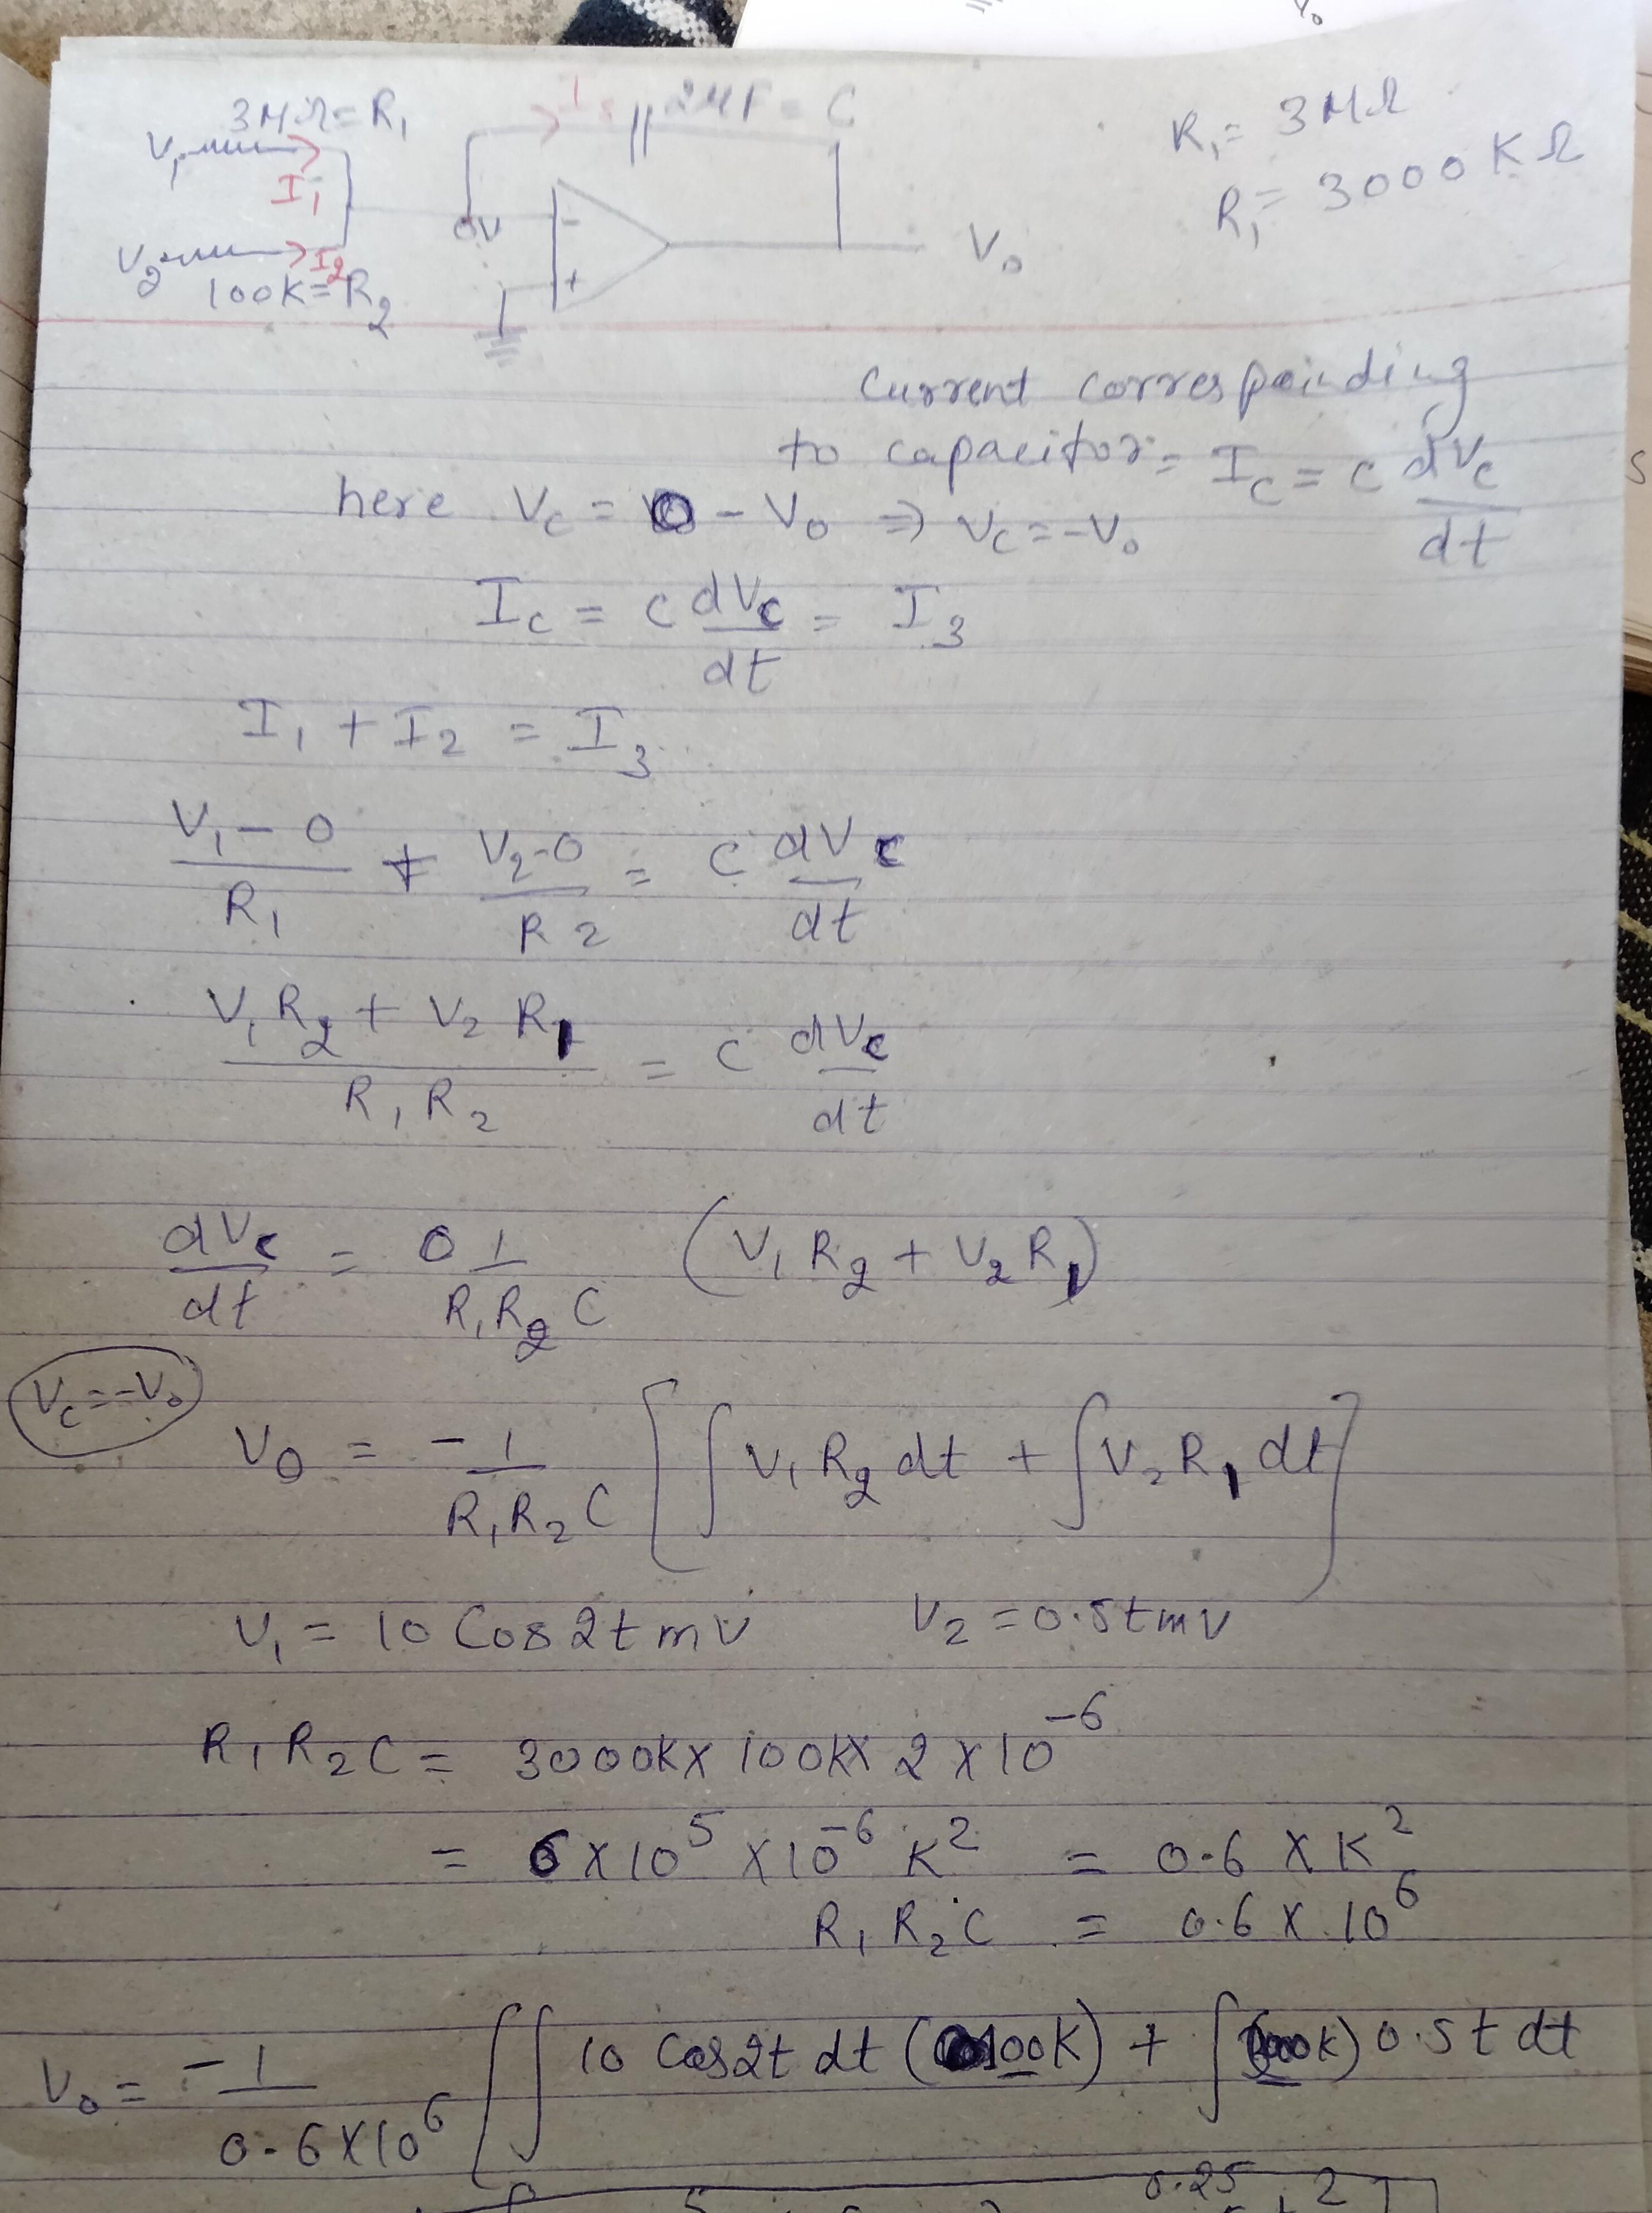 V₀
3MΩ = R₁
2μF = C
V₁
I₁
0V
-
+
V₀
V₂
I₂
100K = R₂
R₁ = 3MΩ
R₁ = 3000 KΩ
Current corresponding
to capacitor = I_C = C dV_C/dt
here V_C = 0 - V₀ ⇒ V_C = -V₀
I_C = C dV_C/dt = I₃
I₁ + I₂ = I₃
(V₁ - 0)/R₁ + (V₂ - 0)/R₂ = C dV_C/dt
(V₁R₂ + V₂R₁)/(R₁R₂) = C dV_C/dt
dV_C/dt = 0 1/(R₁R₂C) (V₁R₂ + V₂R₁)
V_C = -V₀
V₀ = -1/(R₁R₂C) [∫V₁R₂dt + ∫V₂R₁dt]
V₁ = 10 Cos2t mV V₂ = 0.5t mV
R₁R₂C = 3000K × 100K × 2 × 10⁻⁶
= 6 × 10⁵ × 10⁻⁶ K² = 0.6 × K²
R₁R₂C = 0.6 × 10⁶
V₀ = -1/(0.6×10⁶) [∫10 Cos2t dt (100K) + ∫ 0.5t dt
0.25